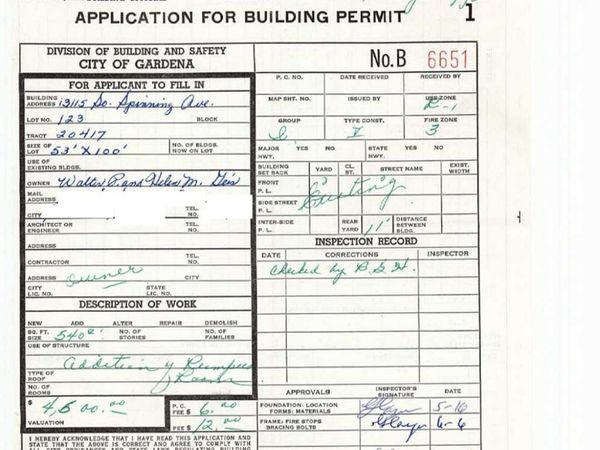 APPLICATION FOR BUILDING PERMIT 1
DIVISION OF BUILDING AND SAFETY
CITY OF GARDENA
No. B 6651
FOR APPLICANT TO FILL IN
BUILDING ADDRESS 13115 So. Spinning Ave.
LOT NO. 123 BLOCK
TRACT 20417
SIZE OF LOT 53' X 100' NO. OF BLDGS. NOW ON LOT
USE OF EXISTING BLDGS.
OWNER Walter P. and Helen M.
MAIL ADDRESS
CITY TEL. NO.
ARCHITECT OR ENGINEER TEL. NO.
ADDRESS
CONTRACTOR TEL. NO.
ADDRESS owner CITY
CITY LIC. NO. STATE LIC. NO.
DESCRIPTION OF WORK
NEW ADD ALTER REPAIR DEMOLISH
SQ. FT. SIZE 540 NO. OF STORIES NO. OF FAMILIES
USE OF STRUCTURE
Addition of Rumpus Room
TYPE OF ROOF
NO. OF ROOMS
$4,500.00
VALUATION
P.C. FEE $ 6.00
FEE $ 12.00
I HEREBY ACKNOWLEDGE THAT I HAVE READ THIS APPLICATION AND
STATE THAT THE ABOVE IS CORRECT AND AGREE TO COMPLY WITH
ALL CITY ORDINANCES AND STATE LAWS REGULATING BUILDING
P. C. NO. DATE RECEIVED RECEIVED BY
MAP SHT. NO. ISSUED BY USE ZONE R-1
GROUP I TYPE CONST. V FIRE ZONE 3
MAJOR HWY. YES NO STATE HWY. YES NO
BUILDING SET BACK YARD CL. ST. STREET NAME EXIST. WIDTH
FRONT P. L. Existing
SIDE STREET P. L.
INTER-SIDE P. L. REAR YARD 11' DISTANCE BETWEEN BLDG.
INSPECTION RECORD
DATE CORRECTIONS INSPECTOR
Checked by B.S.H.
APPROVALS INSPECTOR'S SIGNATURE DATE
FOUNDATION: LOCATION FORMS: MATERIALS 5-16
FRAME: FIRE STOPS BRACING BOLTS 6-6